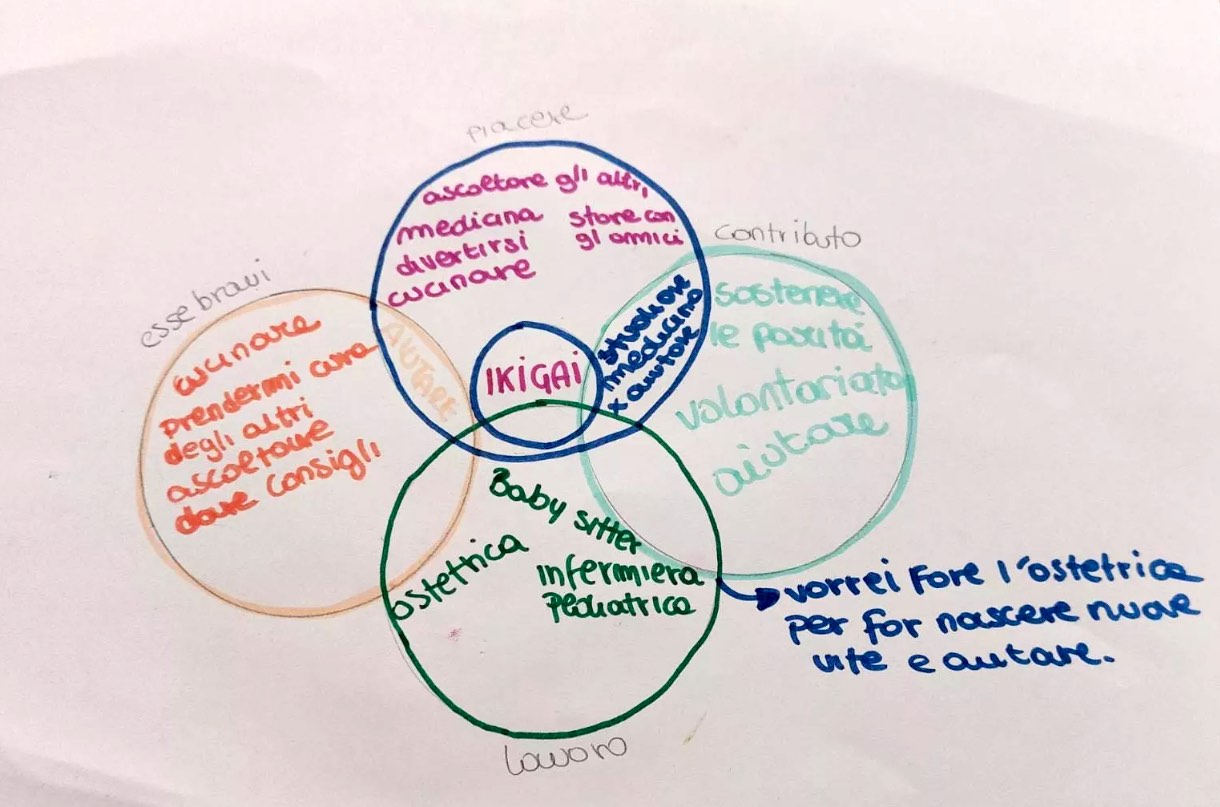 piacere
ascoltare gli altri,
medicina stare con
divertirsi gl amici
cucinare
contributo
sostenere
le parità
volontariato
aiutare
studiare
medicina
x aiutare
esse bravi
cucinare
prendermi cura
degli altri
ascoltare
dare consigli
AIUTARE
IKIGAI
Baby sitter
ostetrica
infermiera
pediatrica
lavoro
vorrei fare l'ostetrica
per far nascere nuove
vite e aiutare.